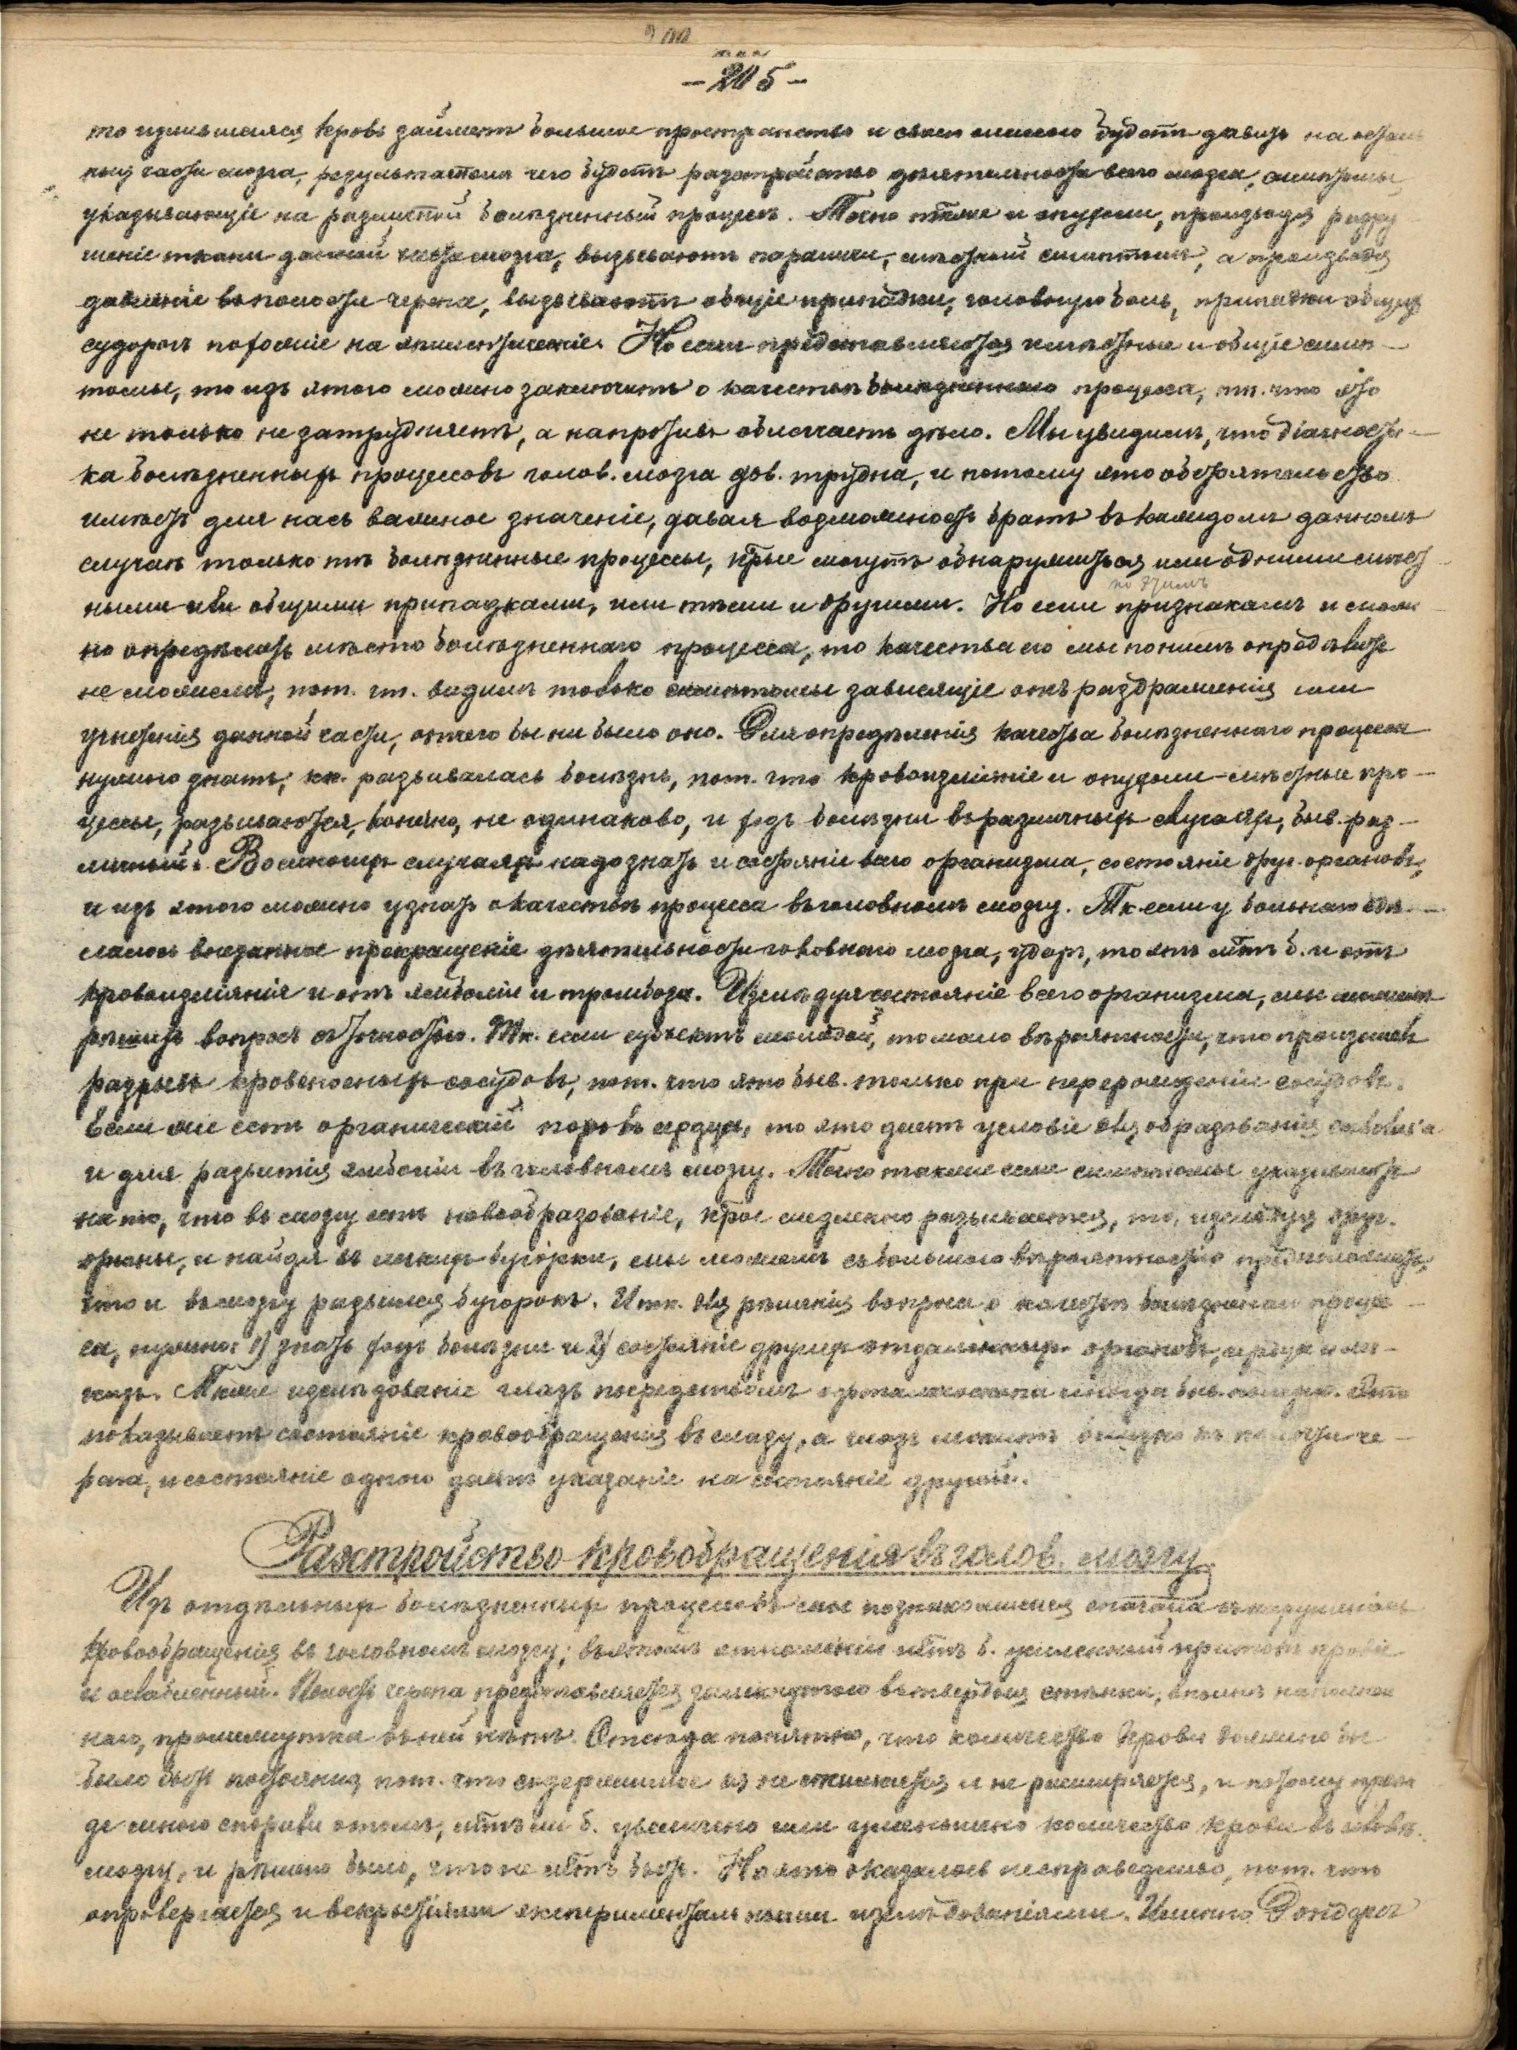 - 205 -
то излившаяся кровь займетъ большое пространство и своею массою будетъ давить на осталь
ныя части мозга, результатомъ чего будетъ разстройство дѣятельности всего мозга, симптомы
указывающіе на разлитой болѣзненный процессъ. Точно также и опухоли, производя разру
шеніе ткани данной части мозга, вызываютъ параличи, мѣстный симптомъ, а производя
давленіе въ полости черепа, вызываютъ общіе припадки, головную боль, припадки общихъ
судорогъ похожіе на эпилептическіе. Но если представляются мѣстные и общіе симп-
томы, то изъ этого можно заключить о качествѣ болѣзненнаго процесса, т. что это
не только не затрудняетъ, а напротивъ облегчаетъ дѣло. Мы увидимъ, что діагности-
ка болѣзненныхъ процессовъ голов. мозга дов. трудна, и потому это обстоятельство
имѣетъ для насъ важное значеніе, давая возможность брать въ каждомъ данномъ
случаѣ только тѣ болѣзненные процессы, кт̅рые могутъ обнаружиться или одними мѣст
ными или общими припадками, или тѣми и другими. Но если по этимъ признакамъ и мож
но опредѣлить мѣсто болѣзненнаго процесса, то качества его мы по нимъ опредѣлить
не можемъ, пот. чт. видимъ только симптомы зависящіе отъ раздраженія или
угнетенія данной части, отчего бы ни было оно. Для опредѣленія качества болѣзненнаго процесса
нужно знать, кк. развивалась болѣзнь, пот. что кровоизліяніе и опухоли - мѣстные про-
цессы, развиваются, конечно, не одинаково, и ходъ болѣзни въ различныхъ случаяхъ, быв. раз-
личный. Во многихъ случаяхъ надо знать и состояніе всего организма, состояніе друг. органовъ,
и изъ этого можно узнать о качествѣ процесса въ головномъ мозгу. Тк. если у больнаго сдѣ-
лалось внезапное прекращеніе дѣятельности головнаго мозга, ударъ, то это м̅тъ б. и отъ
кровоизліянія и отъ эмболіи и тромбоза. Изслѣдуя состояніе всего организма, мы можемъ
рѣшить вопросъ съ точностью. Тк. если субъектъ молодой, то мало вѣроятности, что произошелъ
разрывъ кровеносныхъ сосудовъ, пот. что это быв. только при перерожденіи сосудовъ.
Если же есть органическій порокъ сердца, то это даетъ условіе для образованія
и для развитія эмболіи въ головномъ мозгу. Точно также если симптомы указываютъ
на то, что въ мозгу есть новообразованіе, кт̅рое медленно развивается, то, изслѣдуя друг.
органы, и найдя въ легкихъ бугорки, мы можемъ съ большою вѣроятностью предположить,
что и въ мозгу развился бугорокъ. Итк. для рѣшенія вопроса о качествѣ болѣзненнаго процес
са, нужно: 1) знать ходъ болѣзни и 2) состояніе другихъ отдаленныхъ органовъ, сердца и лег-
кихъ. Также изслѣдованіе глазъ посредствомъ офталмоскопа иногда быв. полезно. Это
показываетъ состояніе кровообращенія въ глазу, а глазъ лежитъ близко къ полости че-
репа, и состояніе одного даетъ указаніе на состояніе другой.
Разстройство кровобращенія въ голов. мозгу.
Изъ отдѣльныхъ болѣзненныхъ процессовъ мы познакомимся сначала съ нарушеніемъ
кровообращенія въ головномъ мозгу; въ этомъ отношеніи м̅тъ б. усиленный притокъ крови
и ослабленный. Полость черепа представляется замкнутою въ твердыя стѣнки, вполнѣ наполнен
ною, промежутка въ ней нѣтъ. Отсюда понятно, что количество крови должно бы
было быть постоянно, пот. что содержимое ея не сжимается и не расширяется, и потому преж
де много спорили о томъ, м̅тъ ли б. увеличено или уменьшено количество крови въ головн.
мозгу, и рѣшено было, что не м̅тъ быть. Но это оказалось несправедливо, пот. что
опровергается и вскрытіями и экспериментальными изслѣдованіями. Именно Дондерсъ